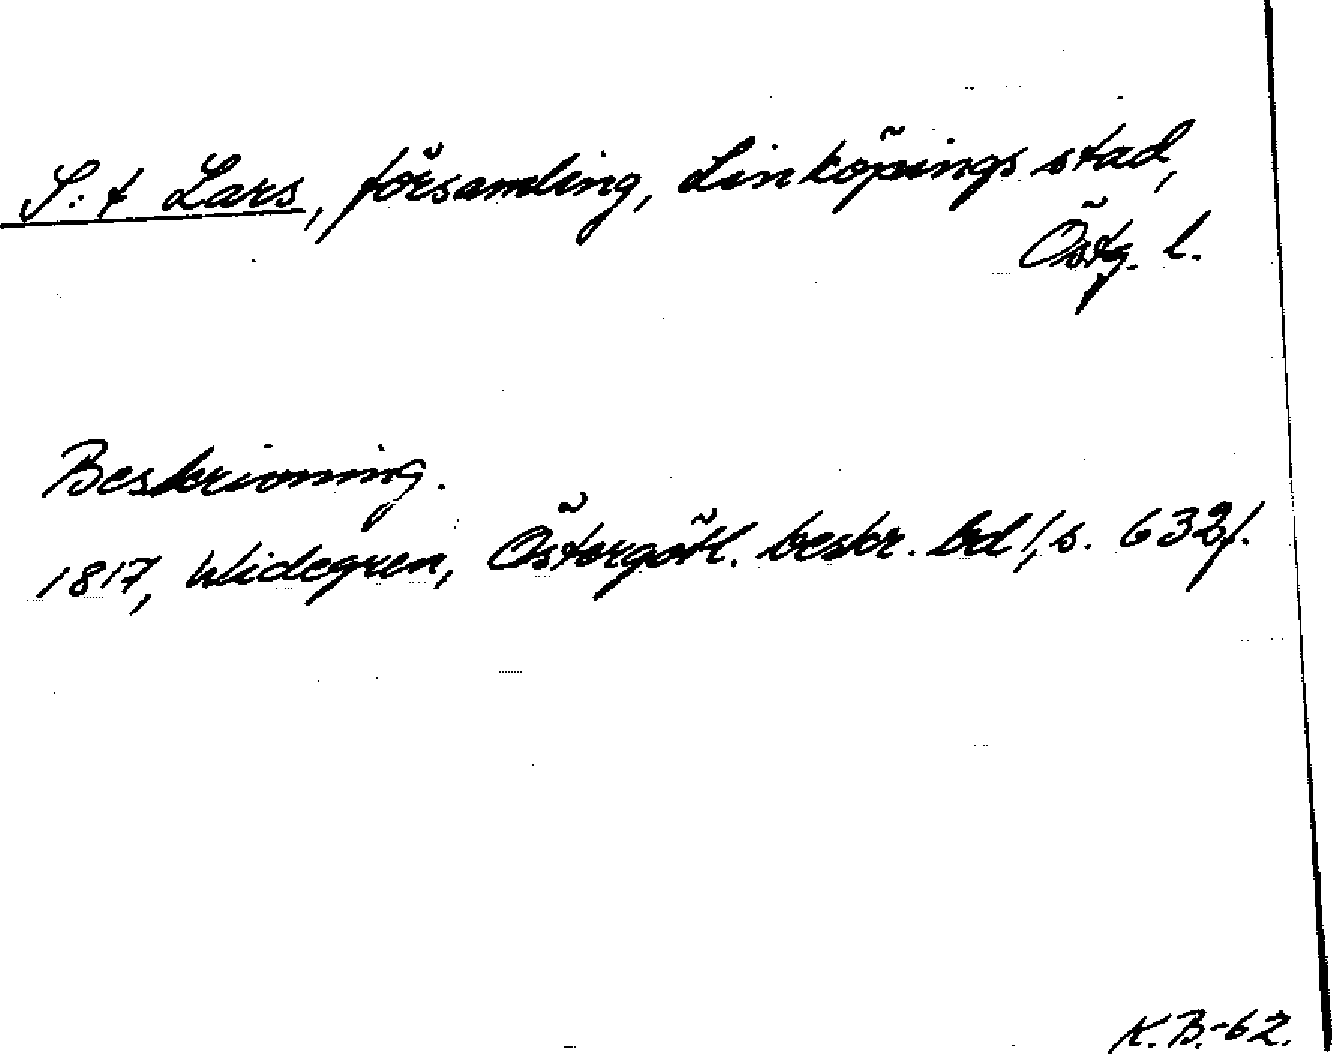 S:t Lars, församling, Linköpings stad,
Östg. l.
Beskrivning.
1817, Widegren, Östergötl. beskr. bd 1, s. 632f.
K.B.-62.